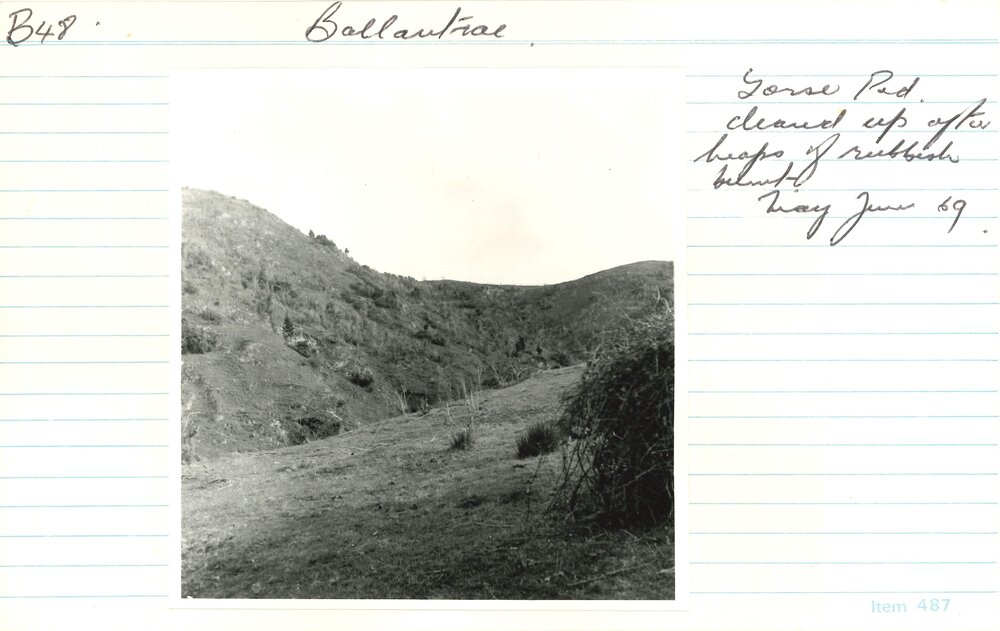 B48.
Ballantrae.
Gorse Pd.
cleaned up after
heaps of rubbish
burnt
May June 69.
Item 487